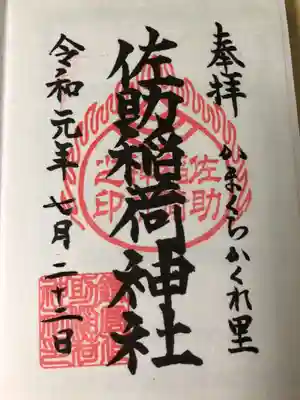 奉拝
かまくらかくれ里
佐助稲荷神社
佐助稲荷
之印
令和元年七月二十二日